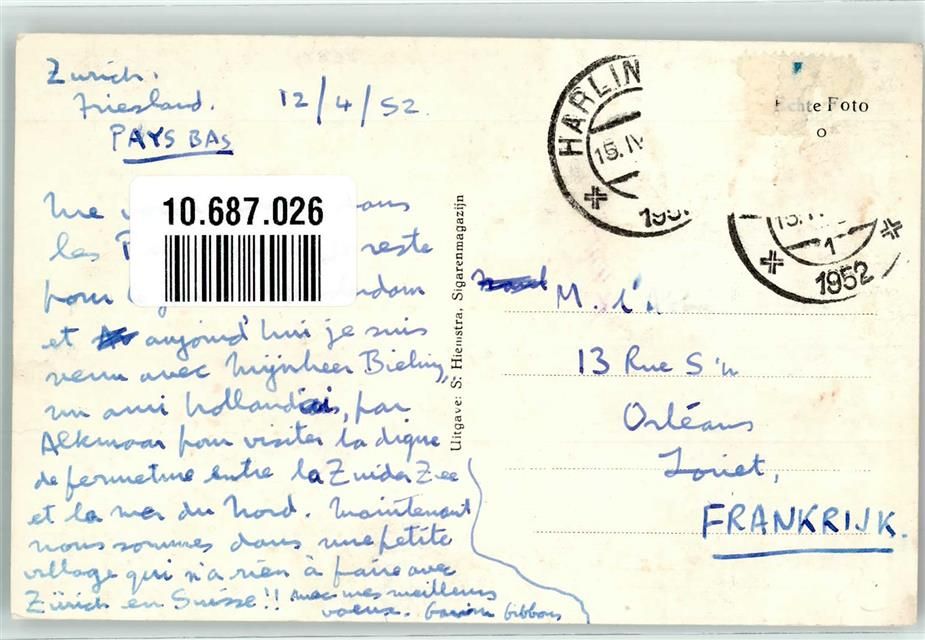 Zurich.
Friesland. 12/4/52.
PAYS BAS
Me
10.687.026
les reste
pour
et aujourd'hui je suis
venu avec Mijnheer
un ami hollandais, par
Alkmaar pour visiter la digue
de fermeture entre la Zuider Zee
et la mer du Nord. Maintenant
nous sommes dans une petite
village qui n'a rien à faire avec
Zürich en Suisse!! avec mes meilleurs
voeux. Gibbons
Uitgave: S. Hiemstra, Sigarenmagazijn
HARLIN
15.IV
195
Echte Foto
1
1952
M.
13 Rue
Orléans
Loriet,
FRANKRIJK.